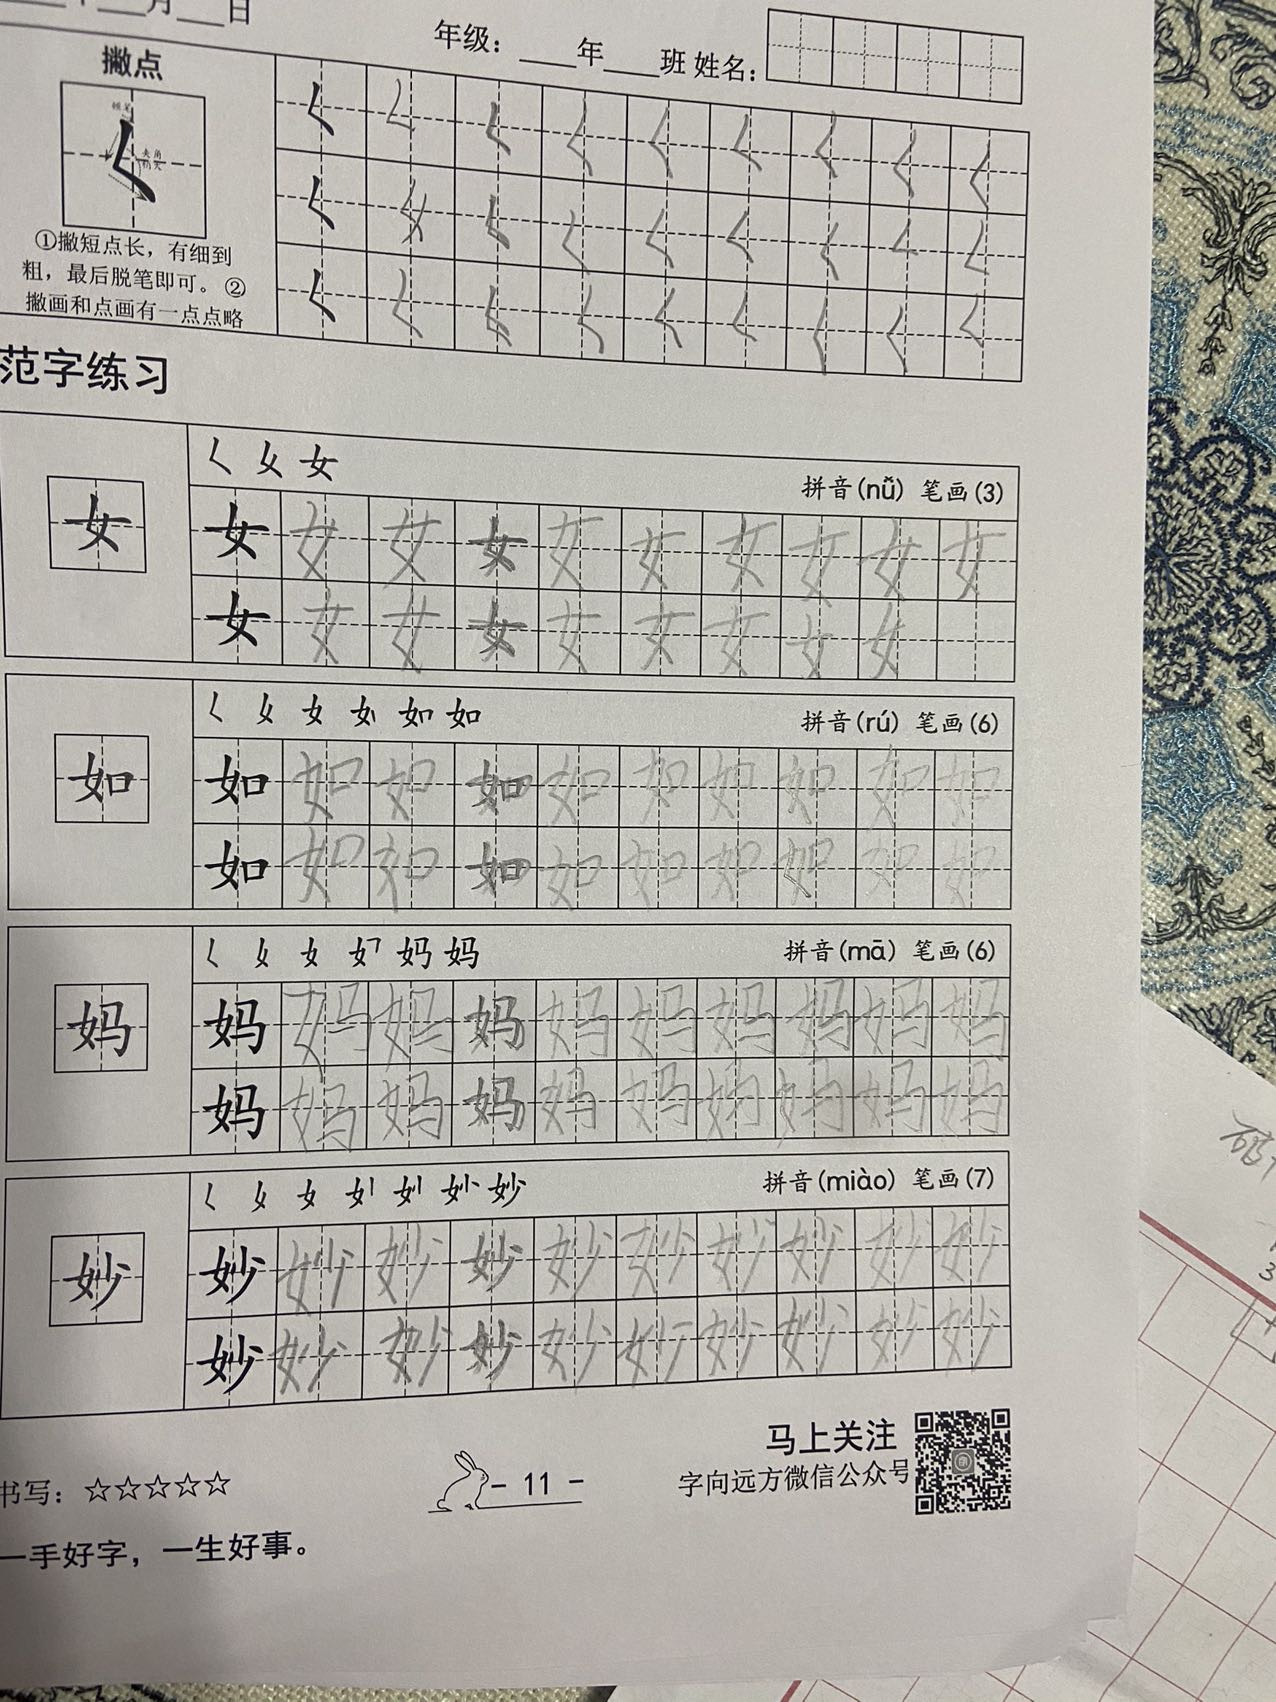 年 月 日
年级： 年 班 姓名：
撇点
①撇短点长，有细到
粗，最后脱笔即可。②
撇画和点画有一点点略
范字练习
女 拼音(nǚ) 笔画(3)
女 女 女 女 女 女 女 女 女 女 女
女 女 女 女 女 女 女 女 女
如 拼音(rú) 笔画(6)
如 如 如 如 如 如 如 如 如 如 如
如 如 如 如 如 如 如 如 如 如
妈 妈 拼音(mā) 笔画(6)
妈 妈 妈 妈 妈 妈 妈 妈 妈 妈 妈
妈 妈 妈 妈 妈 妈 妈 妈 妈 妈
妙 拼音(miào) 笔画(7)
妙 妙 妙 妙 妙 妙 妙 妙 妙 妙 妙
妙 妙 妙 妙 妙 妙 妙 妙 妙 妙
书写：☆☆☆☆☆
- 11 -
马上关注
字向远方微信公众号
一手好字，一生好事。